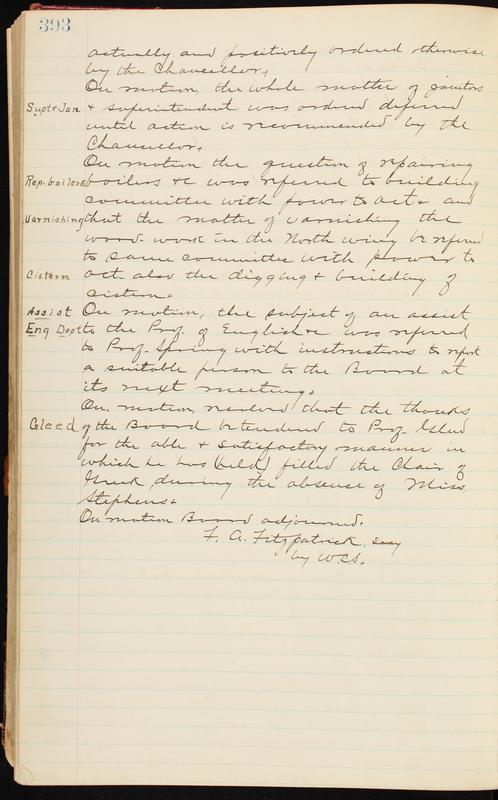 393
actually and positively ordered otherwise
by the Chancellor.
On motion, the whole matter of janitors
Supt & Jan & superintendent was ordered deferred
until action is recommended by the
Chancellor.
On motion the question of repairing
Rep. boilers boilers &c was referred to building
committee with power to act & and
Varnishing that the matter of varnishing the
wood-work in the North wing be referred
to same committee with power to
Cistern act. also the digging & building of
cistern.
Assist On motion, the subject of an assist
Eng Dept to the Prof. of English &c was referred
to Prof. Spring with instructions to report
a suitable person to the Board at
its next meeting.
On motion, resolved that the thanks
Gleed of the Board be tendered to Prof. Gleed
for the able & satisfactory manner in
which he has (held) filled the Chair of
Greek during the absence of Miss
Stephens.
On motion Board adjourned.
F. A. Fitzpatrick, Secy
by W.C.S.